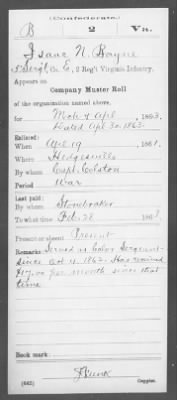 (Confederate.)
B 2 Va.
Isaac N. Boyne
5 Sergt, Co. E, 2 Reg't Virginia Infantry.
Appears on
Company Muster Roll
of the organization named above,
for Mch & Apl, 1863.
Dated Apl 30, 1863.
Enlisted:
When April 19, 1861.
Where Hedgesville
By whom Capt. Colston
Period War
Last paid:
By whom Stonebraker
To what time Feb. 28, 186
Present or absent Present
Remarks: Served as Color Sergeant
since Oct 4, 1862. Has received
$17.00 per month since that
time
Book mark:
(642) Copyist.